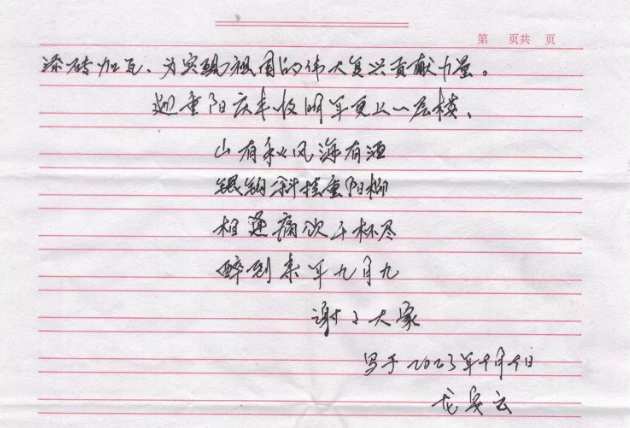 第 页共 页
添砖加瓦、为实现祖国的伟大复兴贡献力量。
迎重阳庆丰收明年更上一层楼、
山有秋风海有酒
银钩斜挂重阳柳
相逢痛饮千杯尽
醉到来年九月九
谢谢大家
写于2023年9月9日
龙安云